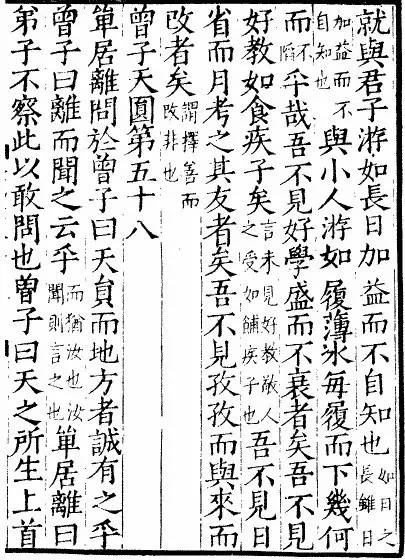 就與君子游如長日加益而不自知也如日之長雖日
加益而不自知也與小人游如履薄冰每履而下幾何
而不陷乎哉吾不見好學盛而不衰者矣吾不見
好教如食疾子矣言未見好教敵人之受如餔疾子也吾不見日
省而月考之其友者矣吾不見孜孜而與來而
改者矣謂擇善而改非也
曾子天圓第五十八
單居離問於曾子曰天員而地方者誠有之乎
曾子曰離而聞之云乎而猶汝也汝聞則言之也單居離曰
弟子不察此以敢問也曾子曰天之所生上首